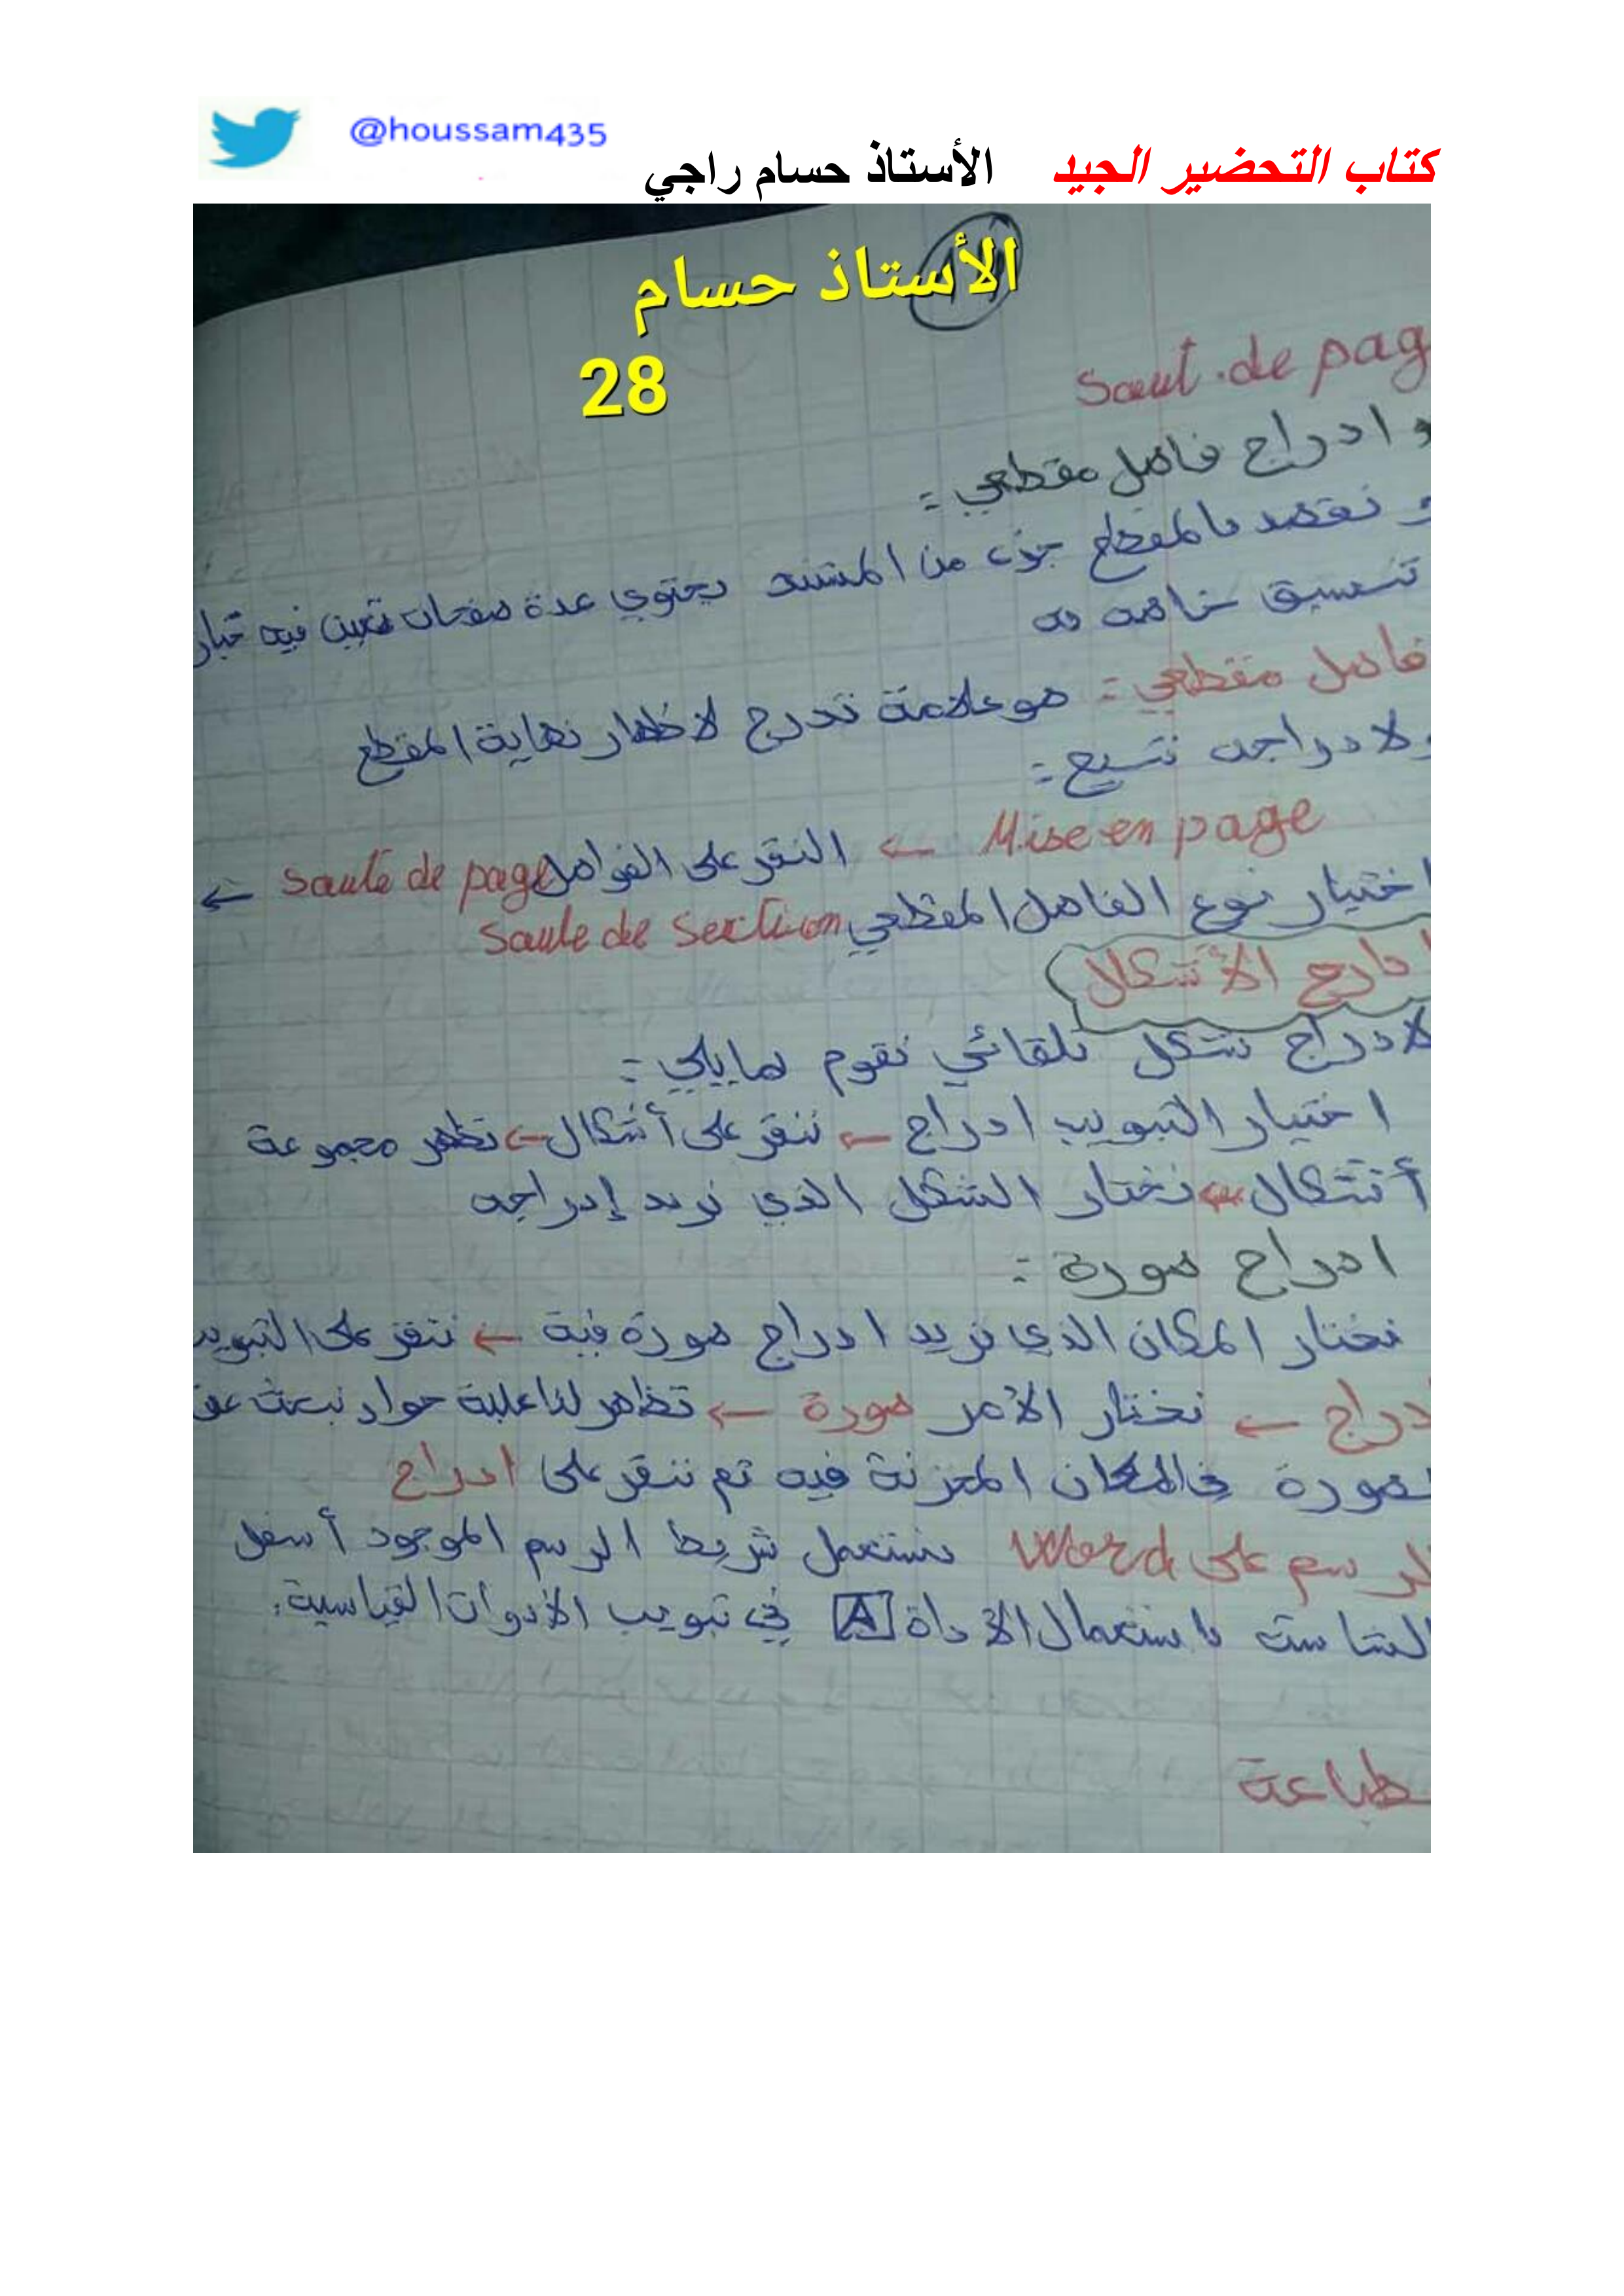 @houssam435
كتاب التحضير الجيد الأستاذ حسام راجي
الأستاذ حسام
28
Saut de pag
و ادراج فاصل مقطعي :
و نقصد بالمقطع جزء من المستند يحتوي عدة صفحات تعين فيه
تنسيق خاصه به
فاصل مقطعي : هو علامة تدرج لاظهار نهاية المقطع
ولادراجه نتبع :
Mise en page ← النقر على الفواصل Saute de page ←
اختيار نوع الفاصل المقطعي Saute de section
ادارج الأشكال
لادراج شكل تلقائي نقوم بمايلي :
اختيار التبويب ادراج ← ننقر على أشكال ← تظهر مجموعة
أشكال ← نختار الشكل الذي نريد إدراجه
ادراج صورة :
نختار المكان الذي نريد ادراج صورة فية ← ننقر على التبويب
دراج ← نختار الأمر صورة ← تظهر لنا علبة حوار نبحث عن
صورة في المكان المخزنة فيه تم ننقر على ادراج
لرسم على Word نستعمل شريط الرسم الموجود أسفل
الشاشة باستعمال الأداة A في تبويب الأدوات القياسية.
طباعة